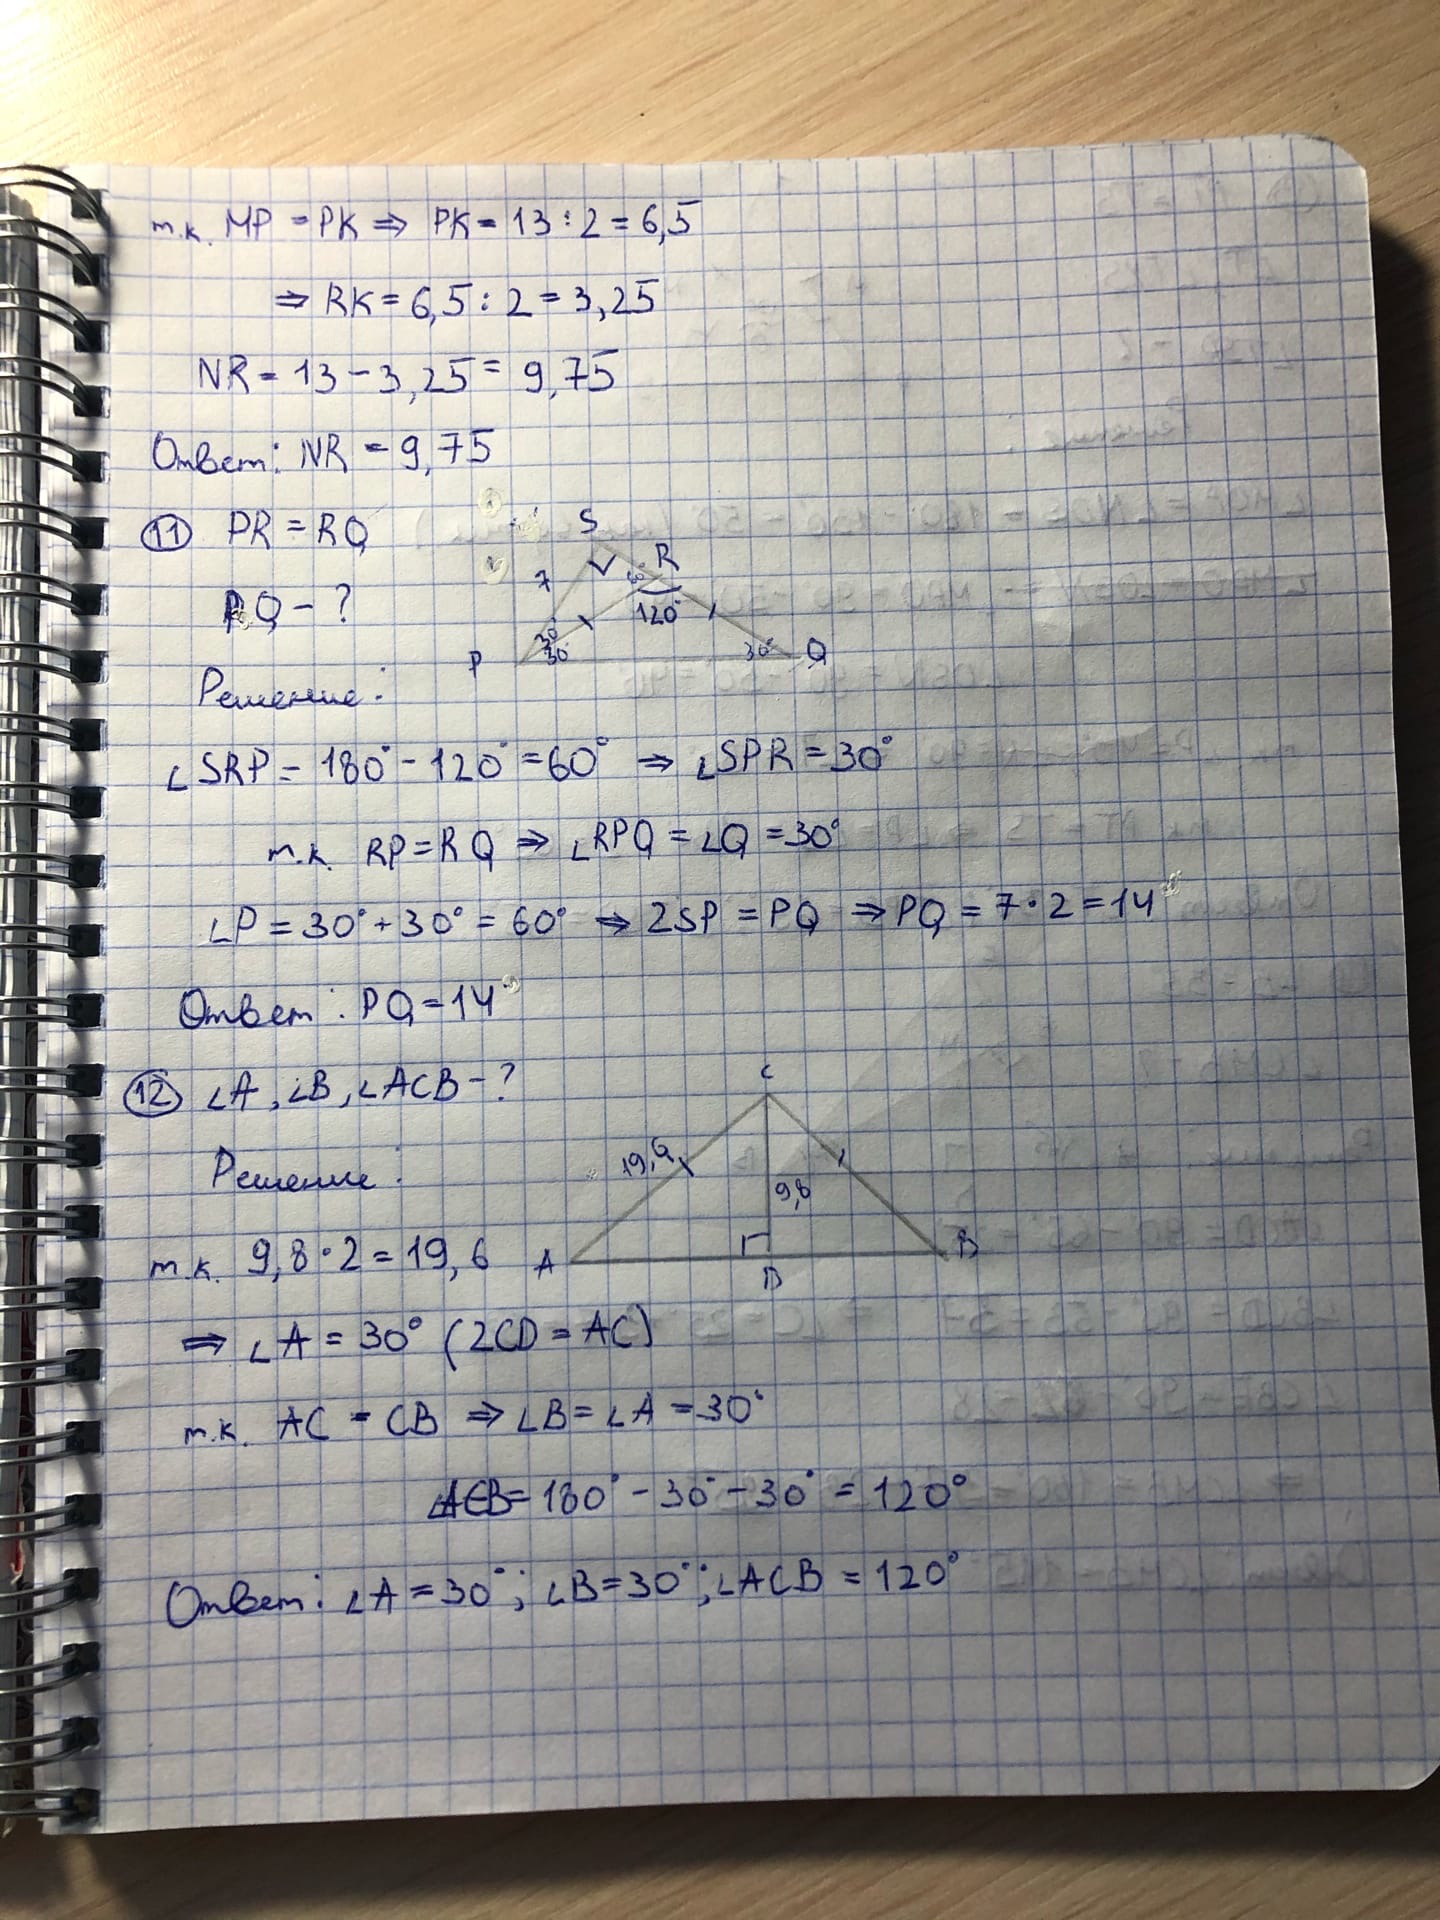 т.к. MP = PK ⇒ PK = 13 : 2 = 6,5
⇒ RK = 6,5 : 2 = 3,25
NR = 13 - 3,25 = 9,75
Ответ: NR = 9,75
11 PR = RQ
PQ - ?
S
R
7
60°
120°
30°
30°
30°
P
Q
Решение:
∠SRP = 180° - 120° = 60° ⇒ ∠SPR = 30°
т.к. RP = RQ ⇒ ∠RPQ = ∠Q = 30°
∠P = 30° + 30° = 60° ⇒ 2SP = PQ ⇒ PQ = 7 · 2 = 14
Ответ: PQ = 14
12 ∠A, ∠B, ∠ACB - ?
C
19,6
9,8
A
B
D
Решение:
т.к. 9,8 · 2 = 19,6
⇒ ∠A = 30° (2CD = AC)
т.к. AC = CB ⇒ ∠B = ∠A = 30°
∠ACB = 180° - 30° - 30° = 120°
Ответ: ∠A = 30°; ∠B = 30°; ∠ACB = 120°